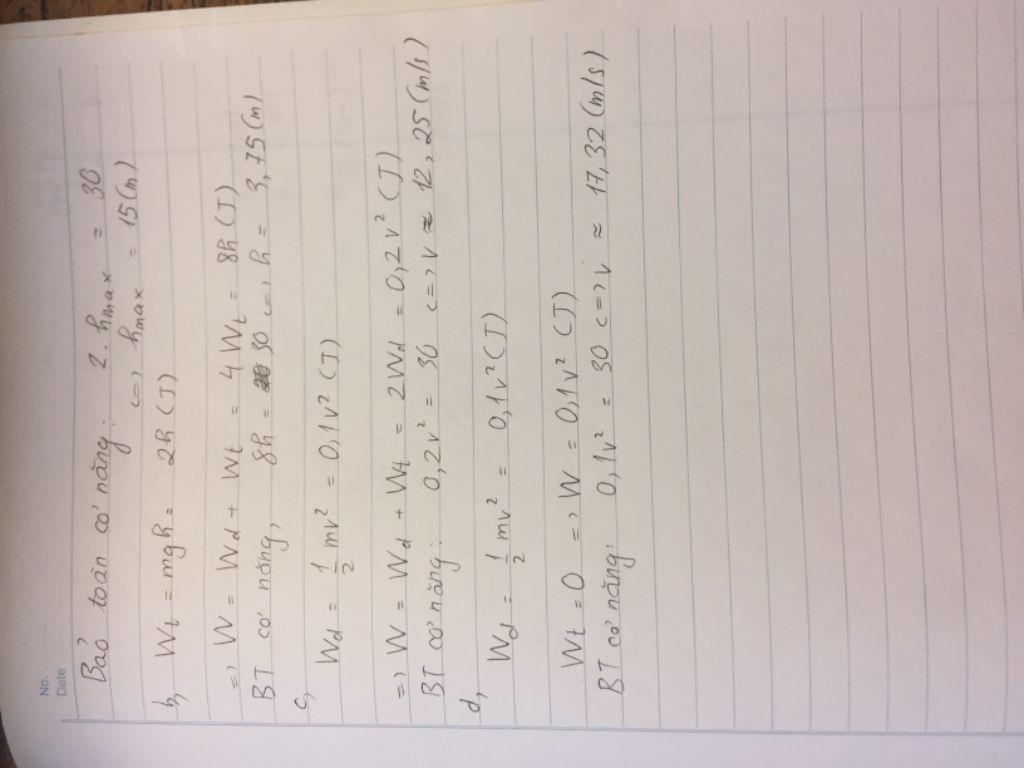 No.
Date
Bảo toàn cơ năng: 2. hmax = 30
<=> hmax = 15(m)
b, Wt = mgh = 2h (J)
=> W = Wd + Wt = 4Wt = 8h (J)
BT cơ năng, 8h = 30 <=> h = 3,75(m)
c,
Wd = 1/2 mv² = 0,1v² (J)
=> W = Wd + Wt = 2Wd = 0,2v² (J)
BT cơ năng: 0,2v² = 30 <=> v ≈ 12,25(m/s)
d,
Wd = 1/2 mv² = 0,1v² (J)
Wt = 0 => W = 0,1v² (J)
BT cơ năng: 0,1v² = 30 <=> v ≈ 17,32 (m/s)